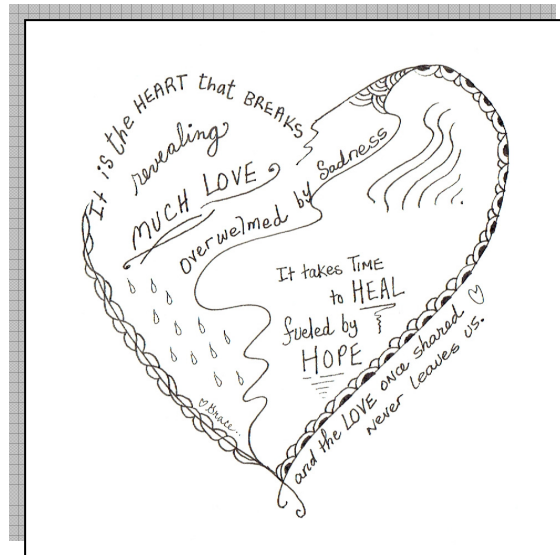 It is the HEART that BREAKS
revealing
MUCH LOVE
overwelmed by Sadness
It takes TIME
to HEAL
fueled by
HOPE
and the LOVE once shared
Never Leaves us.
Grace.